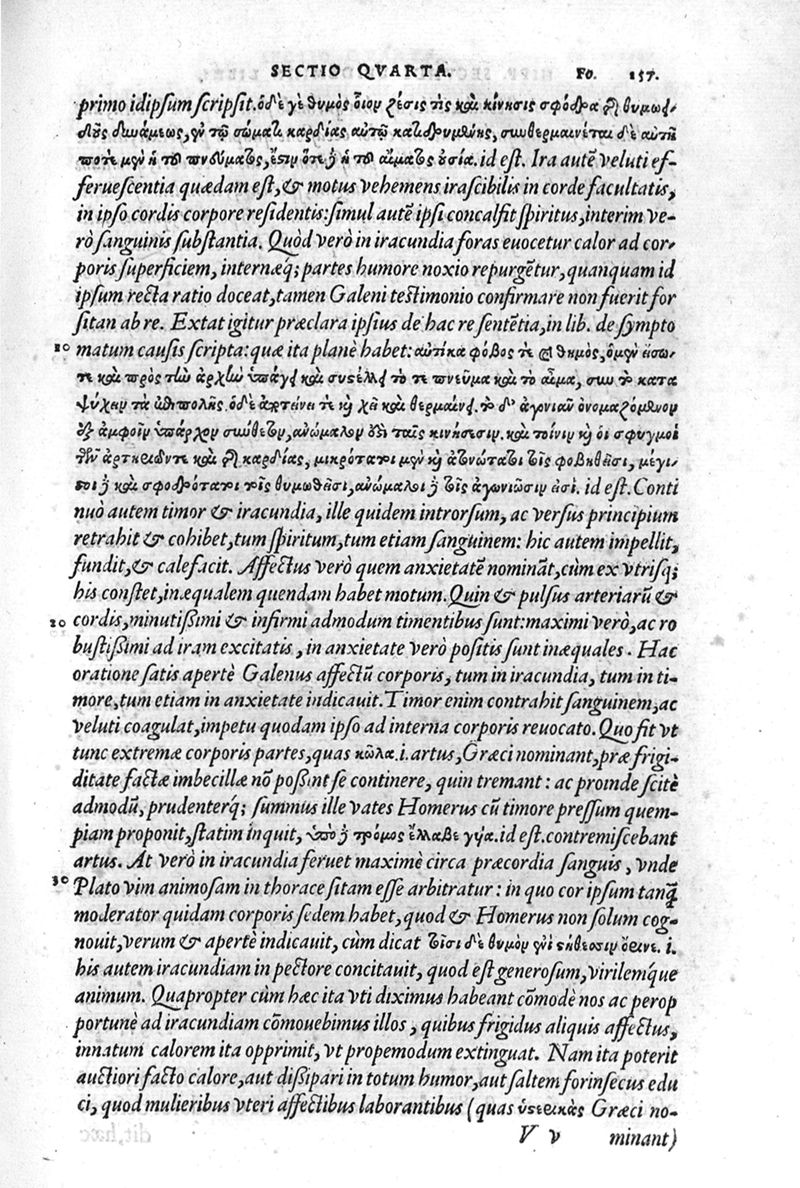 SECTIO QVARTA. FO. 157.
primo idipsum scripsit. ὁ δέ γε θυμὸς οἷον ζέσις τὶς καὶ κίνησις σφόδρα τῆς θυμοει-
δοῦς δυνάμεως, ἐν τῷ σώματι καρδίας αὐτῷ κατιδρυμένης, συνθερμαίνεται δὲ αὐτῇ
ποτὲ μὲν ἡ τοῦ πνεύματος, ἔστιν ὅτε δὲ ἡ τοῦ αἵματος οὐσία. id est. Ira autē veluti ef-
feruescentia quædam est, & motus vehemens irascibilis in corde facultatis,
in ipso cordis corpore residentis: simul autē ipsi concalfit spiritus, interim ve-
rò sanguinis substantia. Quòd verò in iracundia foras euocetur calor ad cor-
poris superficiem, internæq; partes humore noxio repurgētur, quanquam id
ipsum recta ratio doceat, tamen Galeni testimonio confirmare non fuerit for
sitan ab re. Extat igitur præclara ipsius de hac re sentētia, in lib. de sympto
10 matum causis scripta: quæ ita planè habet: αὐτίκα φόβος τε καὶ θυμὸς, ὁ μὲν εἴσω-
τε καὶ πρὸς τὴν ἀρχὴν ὑπάγει καὶ συστέλλει τό τε πνεῦμα καὶ τὸ αἷμα, σὺν τῷ κατα
ψύχειν τὰ ἐπιπολῆς. ὁ δὲ ἐκτείνει τε καὶ χεῖ καὶ θερμαίνει. τὸ δ' ἀγωνιᾶν ὀνομαζόμενον
ἐξ ἀμφοῖν ὑπάρχον σύνθετον, ἀνώμαλον ἐστὶ ταῖς κινήσεσιν. καὶ τοίνυν καὶ οἱ σφυγμοὶ
τῶν ἀρτηριῶν τε καὶ τῆς καρδίας, μικρότατοι μὲν καὶ ἀτονώτατοι τοῖς φοβηθεῖσι, μέγι-
στοι δὲ καὶ σφοδρότατοι τοῖς θυμωθεῖσι, ἀνώμαλοι δὲ τοῖς ἀγωνιῶσιν εἰσί. id est. Conti
nuò autem timor & iracundia, ille quidem introrsum, ac versus principium
retrahit & cohibet, tum spiritum, tum etiam sanguinem: hic autem impellit,
fundit, & calefacit. Affectus verò quem anxietatē nomināt, cùm ex vtrisq;
his constet, inæqualem quendam habet motum. Quin & pulsus arteriarū &
20 cordis, minutissimi & infirmi admodum timentibus sunt: maximi verò, ac ro
bustissimi ad iram excitatis, in anxietate verò positis sunt inæquales. Hac
oratione satis apertè Galenus affectū corporis, tum in iracundia, tum in ti-
more, tum etiam in anxietate indicauit. Timor enim contrahit sanguinem, ac
veluti coagulat, impetu quodam ipso ad interna corporis reuocato. Quo fit vt
tunc extremæ corporis partes, quas κῶλα. i. artus, Græci nominant, præ frigi-
ditate factæ imbecillæ nō possint se continere, quin tremant: ac proinde scitè
admodū, prudenterq́; summus ille vates Homerus cū timore pressum quem-
piam proponit, statim inquit, ὑπὸ δὲ τρόμος ἔλλαβε γυῖα. id est. contremiscebant
artus. At verò in iracundia feruet maximè circa præcordia sanguis, vnde
30 Plato vim animosam in thorace sitam esse arbitratur: in quo cor ipsum tanq̄
moderator quidam corporis sedem habet, quod & Homerus non solum cog-
nouit, verum & apertè indicauit, cùm dicat τοῖσι δὲ θυμὸν ἐνὶ στήθεσσιν ὄρινε. i.
his autem iracundiam in pectore concitauit, quod est generosum, virilemq́ue
animum. Quapropter cùm hæc ita vti diximus habeant cōmodè nos ac perop
portunè ad iracundiam cōmouebimus illos, quibus frigidus aliquis affectus,
innatum calorem ita opprimit, vt propemodum extinguat. Nam ita poterit
auctiori facto calore, aut dissipari in totum humor, aut saltem forinsecus edu
ci, quod mulieribus vteri affectibus laborantibus (quas ὑστερικὰς Græci no-
V v minant)